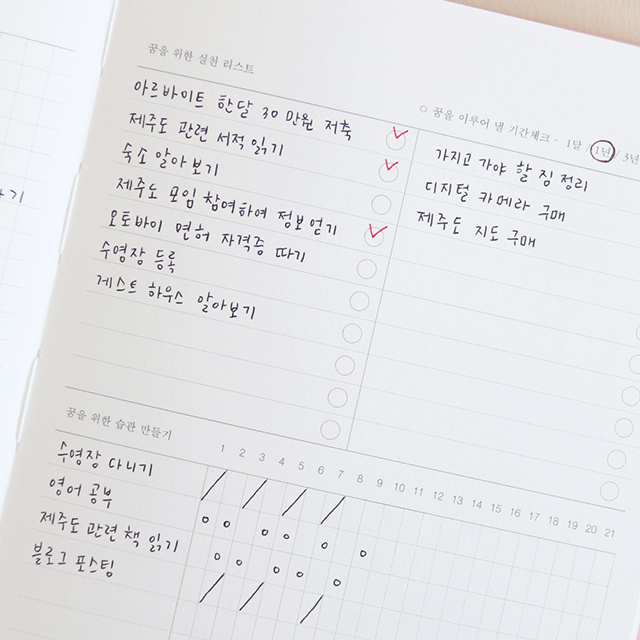 꿈을 위한 실천 리스트
아르바이트 한달 30만원 저축
제주도 관련 서적 읽기
숙소 알아보기
제주도 모임 참여하여 정보얻기
오토바이 면허 자격증 따기
수영장 등록
게스트 하우스 알아보기
꿈을 이루어 낼 기간체크 · 1달 / 1년 / 3년
가지고 가야 할 짐 정리
디지털 카메라 구매
제주도 지도 구매
꿈을 위한 습관 만들기
1 2 3 4 5 6 7 8 9 10 11 12 13 14 15 16 17 18 19 20 21
수영장 다니기
영어 공부
제주도 관련 책 읽기
블로그 포스팅